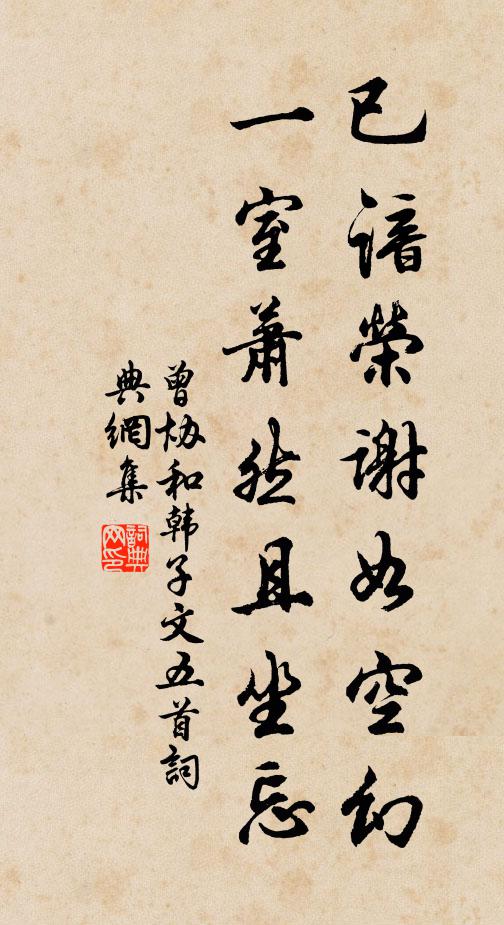 已谙榮谢如空幻
一室蕭然且坐忘
曾协和韩子文五首詞
典網集
詞典網印